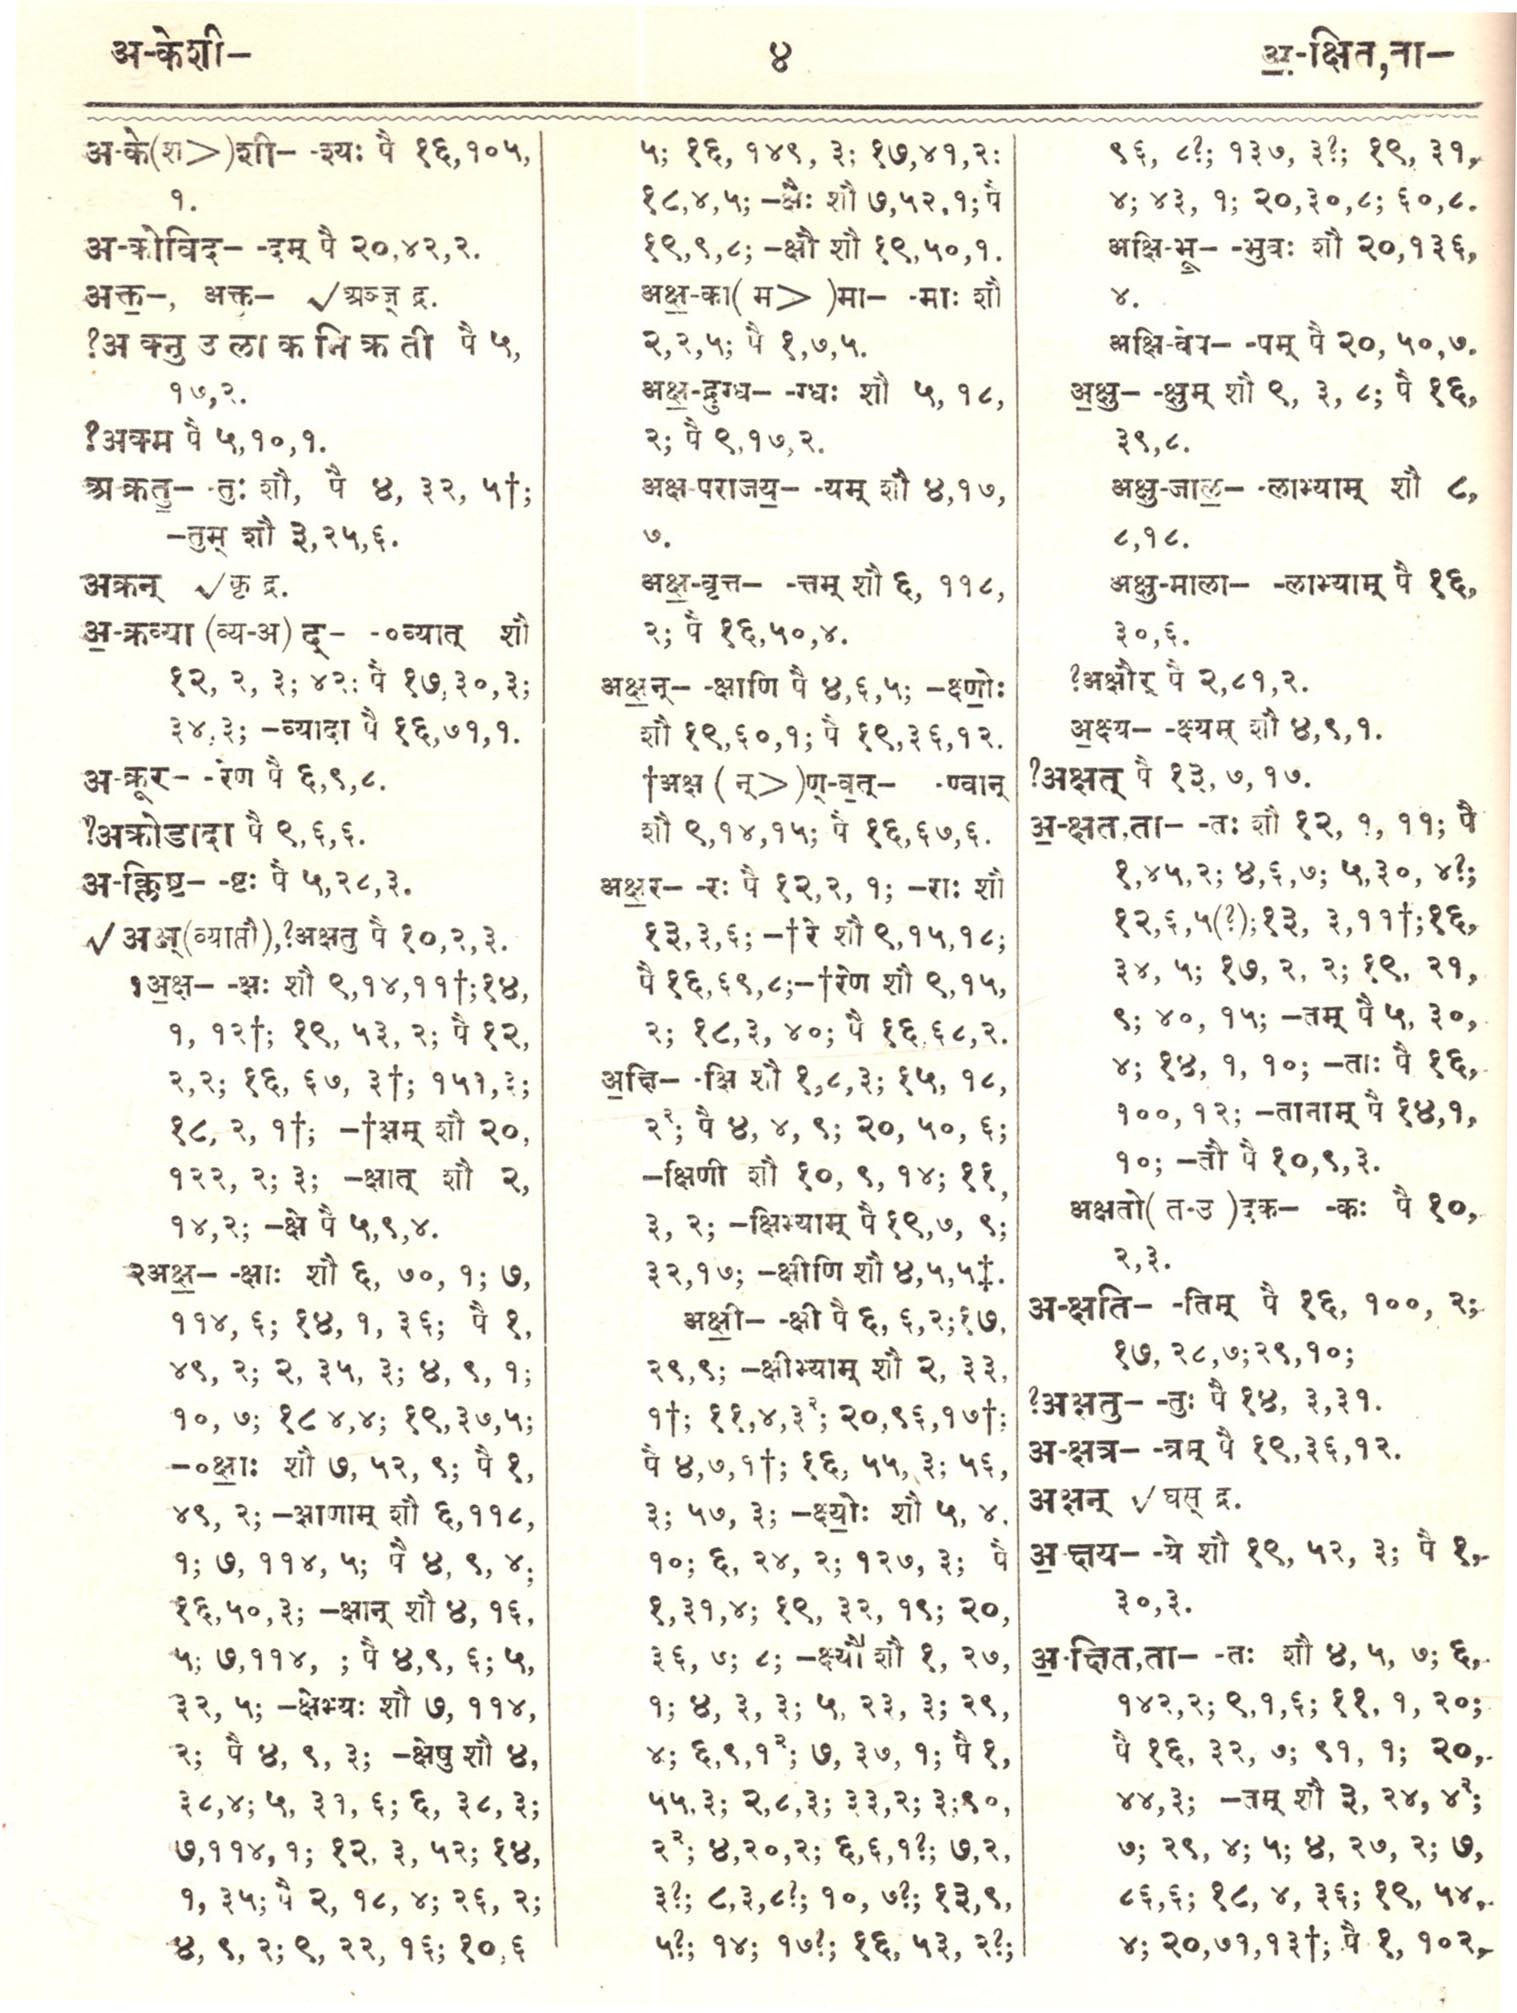 अ-केशी—
४
अ॒-क्षित,ता—
अ-के(श>)शी— -श्यः पै १६,१०५,
१.
अ-कोविद— -दम् पै २०,४२,२.
अक्त॒—, अक्त— √अञ्ज् द्र.
?अ क्नु उ ला क नि क्र ती पै ५,
१७,२.
?अक्मम पै ५,१०,१.
अ-क्रतु॒— -तुः शौ, पै ४, ३२, ५†;
—तुम् शौ ३,२५,६.
अक्रन् √कृ द्र.
अ॒-क्रव्या (व्य-अ) द्— -०व्यात् शौ
१२, २, ३; ४२; पै १७,३०,३;
३४,३; —व्यादा पै १६,७१,१.
अ-क्रूर— -रेण पै ६,९,८.
?अक्रोडादा पै ९,६,६.
अ-क्लिष्ट— -ष्टः पै ५,२८,३.
√अक्ष् (व्याप्तौ),?अक्षतु पै १०,२,३.
१अ॒क्ष— -क्षः शौ ९,१४,११†;१४,
१, १२†; १९, ५३, २; पै १२,
२,२; १६, ६७, ३†; १५१,३;
१८, २, १†; —†क्षम् शौ २०,
१२२, २; ३; —क्षात् शौ २,
१४,२; —क्षे पै ५,९,४.
२अक्ष॒— -क्षाः शौ ६, ७०, १; ७,
११४, ६; १४, १, ३६; पै १,
४९, २; २, ३५, ३; ४, ९, १;
१०, ७; १८ ४,४; १९,३७,५;
—०क्षा॒ः शौ ७, ५२, ९; पै १,
४९, २; —क्षाणाम् शौ ६,११८,
१; ७, ११४, ५; पै ४, ९, ४;
१६,५०,३; —क्षान् शौ ४, १६,
५; ७,११४, ; पै ४,९, ६; ५,
३२, ५; —क्षेभ्यः शौ ७, ११४,
२; पै ४, ९, ३; —क्षेषु शौ ४,
३८,४; ५, ३१, ६; ६, ३८, ३;
७,११४, १; १२, ३, ५२; १४,
१, ३५; पै २, १८, ४; २६, २;
४, ९, २; ९, २२, १६; १०,६
५; १६, १४९, ३; १७,४१,२;
१८,४,५; —क्षैः शौ ७,५२,१; पै
१९,९,८; —क्षौ शौ १९,५०,१.
अक्ष॒-का( म> )मा— -माः शौ
२,२,५; पै १,७,५.
अक्ष॒-द्रुग्ध— -ग्धः शौ ५, १८,
२; पै ९,१७,२.
अक्ष-पराजय॒— -यम् शौ ४,१७,
७.
अक्ष॒-वृत्त— -त्तम् शौ ६, ११८,
२; पै १६,५०,४.
अक्ष॒न्— -क्षाणि पै ४,६,५; —क्ष्णो॒ः
शौ १९,६०,१; पै १९,३६,१२.
†अक्ष ( न्> )ण्-व॒त्— -ण्वान्
शौ ९,१४,१५; पै १६,६७,६.
अक्ष॒र— -रः पै १२,२, १; —राः शौ
१३,३,६; —†रे शौ ९,१५,१८;
पै १६,६९,८;—†रेण शौ ९,१५,
२; १८,३, ४०; पै १६,६८,२.
अ॒क्षि— -क्षि शौ १,८,३; १५, १८,
२²; पै ४, ४, ९; २०, ५०, ६;
—क्षिणी शौ १०, ९, १४; ११,
३, २; —क्षिभ्याम् पै १९,७, ९;
३२,१७; —क्षीणि शौ ४,५,५‡.
अक्षी॒— -क्षी पै ६, ६,२;१७,
२९,९; —क्षीभ्याम् शौ २, ३३,
१†; ११,४,३²; २०,९६,१७†;
पै ४,७,१†; १६, ५५, ३; ५६,
३; ५७, ३; —क्ष्यो॒ः शौ ५, ४,
१०; ६, २४, २; १२७, ३; पै
१,३१,४; १९, ३२, १९; २०,
३६, ७; ८; —क्ष्यौ शौ १, २७,
१; ४, ३, ३; ५, २३, ३; २९,
४; ६,९,१²; ७, ३७, १; पै १,
५५,३; २,८,३; ३३,२; ३;९०,
२²; ४,२०,२; ६,६,१?; ७,२,
३?; ८,३,८?; १०, ७?; १३,९,
५?; १४; १७?; १६, ५३, २?;
९६, ८?; १३७, ३?; १९, ३१,
४; ४३, १; २०,३०,८; ६०,८.
अक्षि-भू— -भुवः शौ २०,१३६,
४.
अक्षि-वेप— -पम् पै २०, ५०,७.
अ॒क्षु— -क्षुम् शौ ९, ३, ८; पै १६,
३९,८.
अक्षु-जाल॒— -लाभ्याम् शौ ८,
८,१८.
अक्षु-माला— -लाभ्याम् पै १६,
३०,६.
?अक्षौर् पै २,८१,२.
अ॒क्ष्य— -क्ष्यम् शौ ४,९,१.
?अक्षत् पै १३, ७, १७.
अ॒-क्षत,ता— -तः शौ १२, १, ११; पै
१,४५,२; ४,६,७; ५,३०, ४?;
१२,६,५(?);१३, ३,११†;१६,
३४, ५; १७, २, २; १९, २१,
९; ४०, १५; —तम् पै ५, ३०,
४; १४, १, १०; —ताः पै १६,
१००, १२; —तानाम् पै १४,१,
१०; —तौ पै १०,९,३.
अक्षतो( त-उ )दक— -कः पै १०,
२,३.
अ-क्षति— -तिम् पै १६, १००, २;
१७, २८,७;२९,१०;
?अक्षतु— -तुः पै १४, ३,३१.
अ-क्षत्र— -त्रम् पै १९,३६,१२.
अक्षन् √घस् द्र.
अ॒-क्षय— -ये शौ १९, ५२, ३; पै १,
३०,३.
अ॒-क्षित,ता— -तः शौ ४, ५, ७; ६,
१४२,२; ९,१,६; ११, १, २०;
पै १६, ३२, ७; ९१, १; २०,
४४,३; —तम् शौ ३, २४, ४²;
७; २९, ४; ५; ४, २७, २; ७,
८६,६; १८, ४, ३६; १९, ५४,
४; २०,७१,१३†; पै १, १०२,